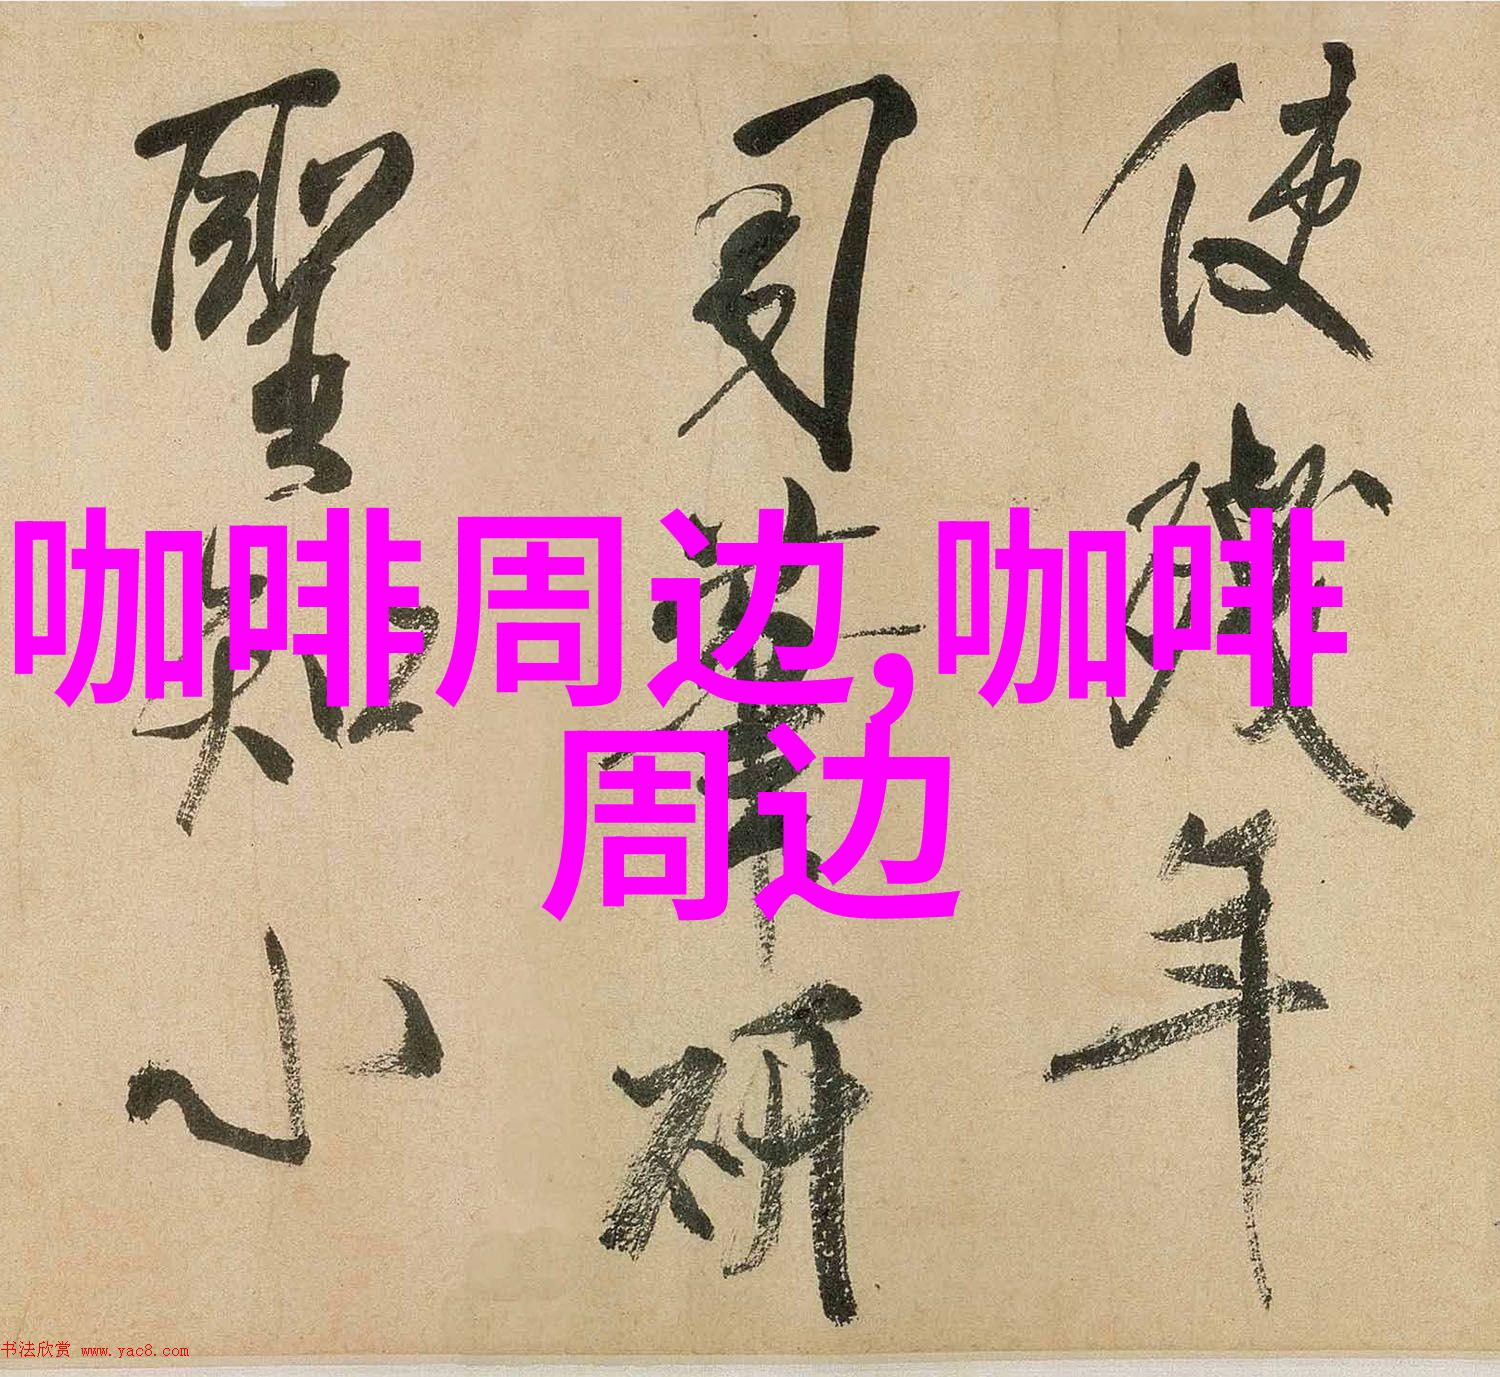 咖啡周边,咖啡
周边
使殘年
筆研
聖知小
书法欣赏 www.yac8.com